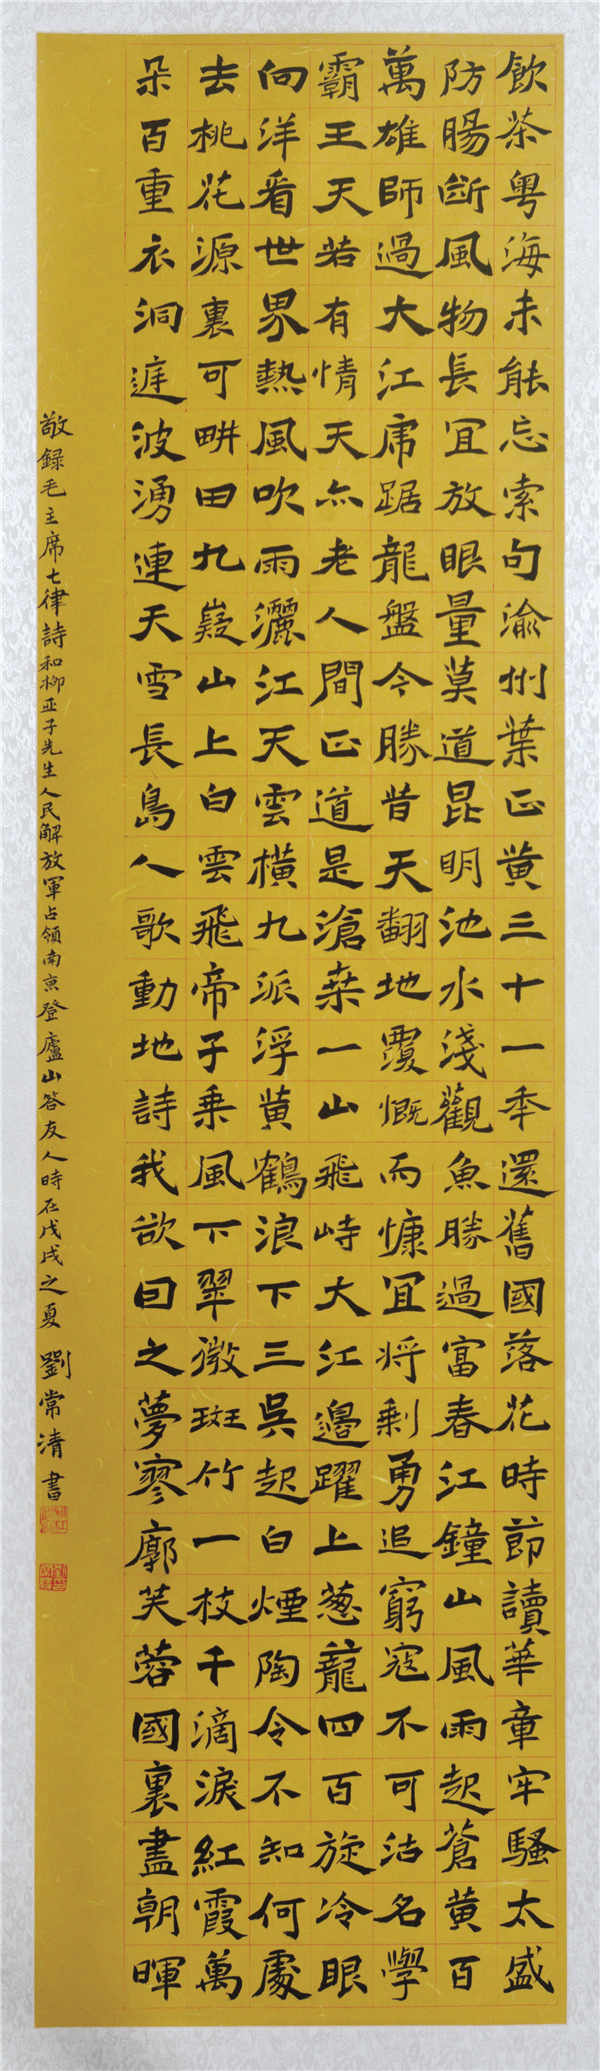 飲茶粤海未能忘索句渝州葉正黄三十一年還舊國落花時節讀華章牢騷太盛
防腸斷風物長宜放眼量莫道昆明池水淺觀魚勝過富春江鐘山風雨起蒼黄百
萬雄師過大江虎踞龍盤今勝昔天翻地覆慨而慷宜将剩勇追窮寇不可沽名學
霸王天若有情天亦老人間正道是滄桑一山飛峙大江邊躍上葱蘢四百旋冷眼
向洋看世界熱風吹雨灑江天雲横九派浮黄鶴浪下三吳起白煙陶令不知何處
去桃花源裏可畊田九嶷山上白雲飛帝子乘風下翠微斑竹一枝千滴淚紅霞萬
朵百重衣洞庭波湧連天雪長島人歌動地詩我欲因之夢寥廓芙蓉國裏盡朝暉
敬録毛主席七律詩和柳亚子先生人民解放軍占領南京登廬山答友人時在戊戌之夏劉常清書